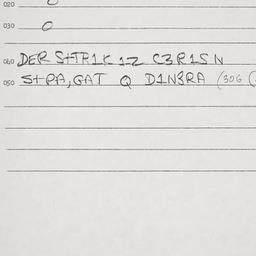 020
030 O
060 DER S+TR1K 1Z C3R1S N
050 S+PA,GAT Q D1N3RA (306